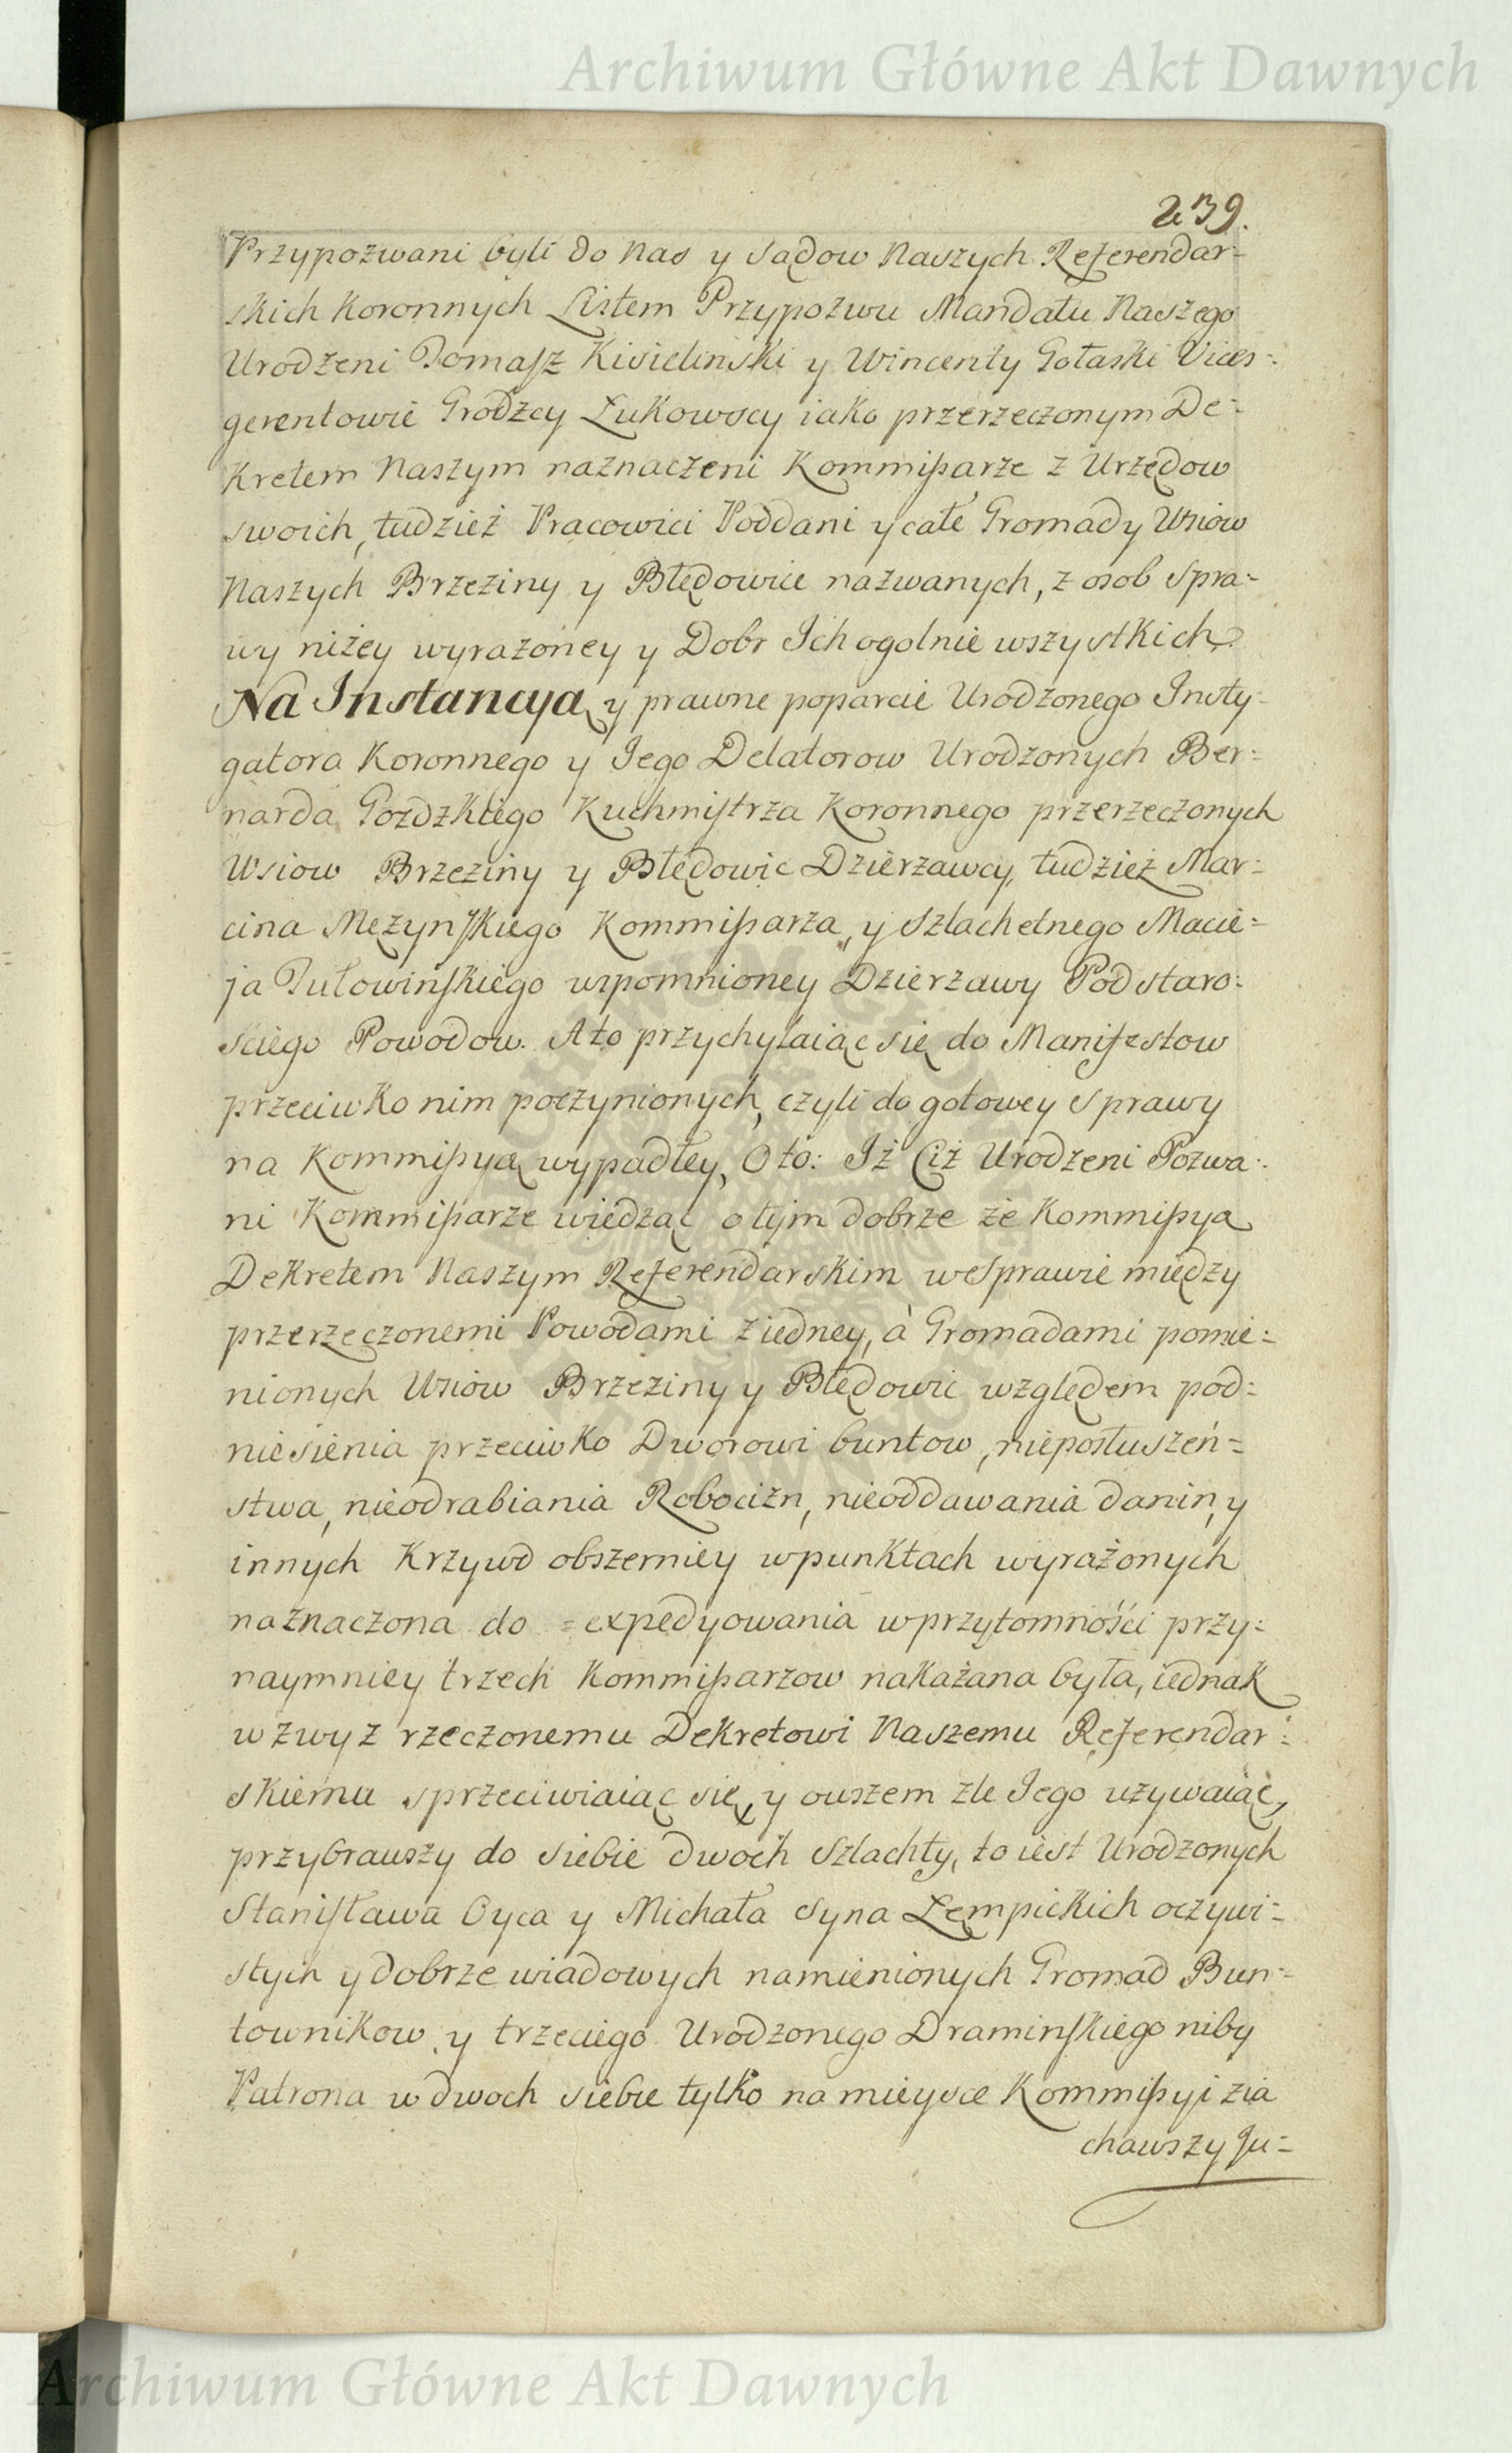 Archiwum Główne Akt Dawnych
239.
Przypozwani byli do Nas y Sądow Naszych Referendar-
skich Koronnych Listem Przypozwu Mandatu Naszego
Urodzeni Tomasz Kisielinski y Wincenty Gołaski Vices-
gerentowie Grodzcy Łukowscy iako przerzeczonym De-
kretem Naszym naznaczeni Kommißarze z Urzędow
swoich, tudzież Pracowici Poddani y całe Gromady Wsiow
Naszych Brzeziny y Błędowice nazwanych, z osob Spra-
wy niżey wyrażoney y Dobr Ich ogolnie wszystkich.
Na Instancyą y prawne poparcie Urodzonego Insty-
gatora Koronnego y Jego Delatorow Urodzonych Ber-
narda Gozdzkiego Kuchmistrza Koronnego przerzeczonych
Wsiow Brzeziny y Błędowic Dzierzawcy, tudzież Mar-
cina Mężynskiego Kommißarza, y Szlachetnego Macie-
ja Tułowinskiego wspomnioney Dzierzawy Podstaro-
sciego Powodow. A to przychylaiąc się do Manifestow
przeciwko nim poczynionych, czyli do gotowey Sprawy
na Kommißyą wypadłey, Oto: Iż Ciż Urodzeni Pozwa-
ni Kommißarze wiedząc o tym dobrze że Kommißya
Dekretem Naszym Referendarskim w Sprawie między
przerzeczonemi Powodami z iedney, à Gromadami pomie-
nionych Wsiow Brzeziny y Błędowic względem pod-
niesienia przeciwko Dworowi buntow, nieposłuszeń-
stwa, nieodrabiania Robocizn, nieoddawania danin, y
innych Krzywd obszerniey w punktach wyrażonych
naznaczona do = expedyowania w przytomności przy-
naymniey trzech Kommißarzow nakazana była, iednak
wzwyz rzeczonemu Dekretowi Naszemu Referendar-
skiemu sprzeciwiaiąc się, y owszem zle Jego używaiąc,
przybrawszy do siebie dwoch Szlachty, to iest Urodzonych
Stanisława Oyca y Michała Syna Łempickich oczywi-
stych y dobrze wiadowych namienionych Gromad Bun-
townikow y trzeciego Urodzonego Draminskiego niby
Patrona w dwoch siebie tylko na mieysce Kommißyi zia
chawszy Ju-
Archiwum Główne Akt Dawnych